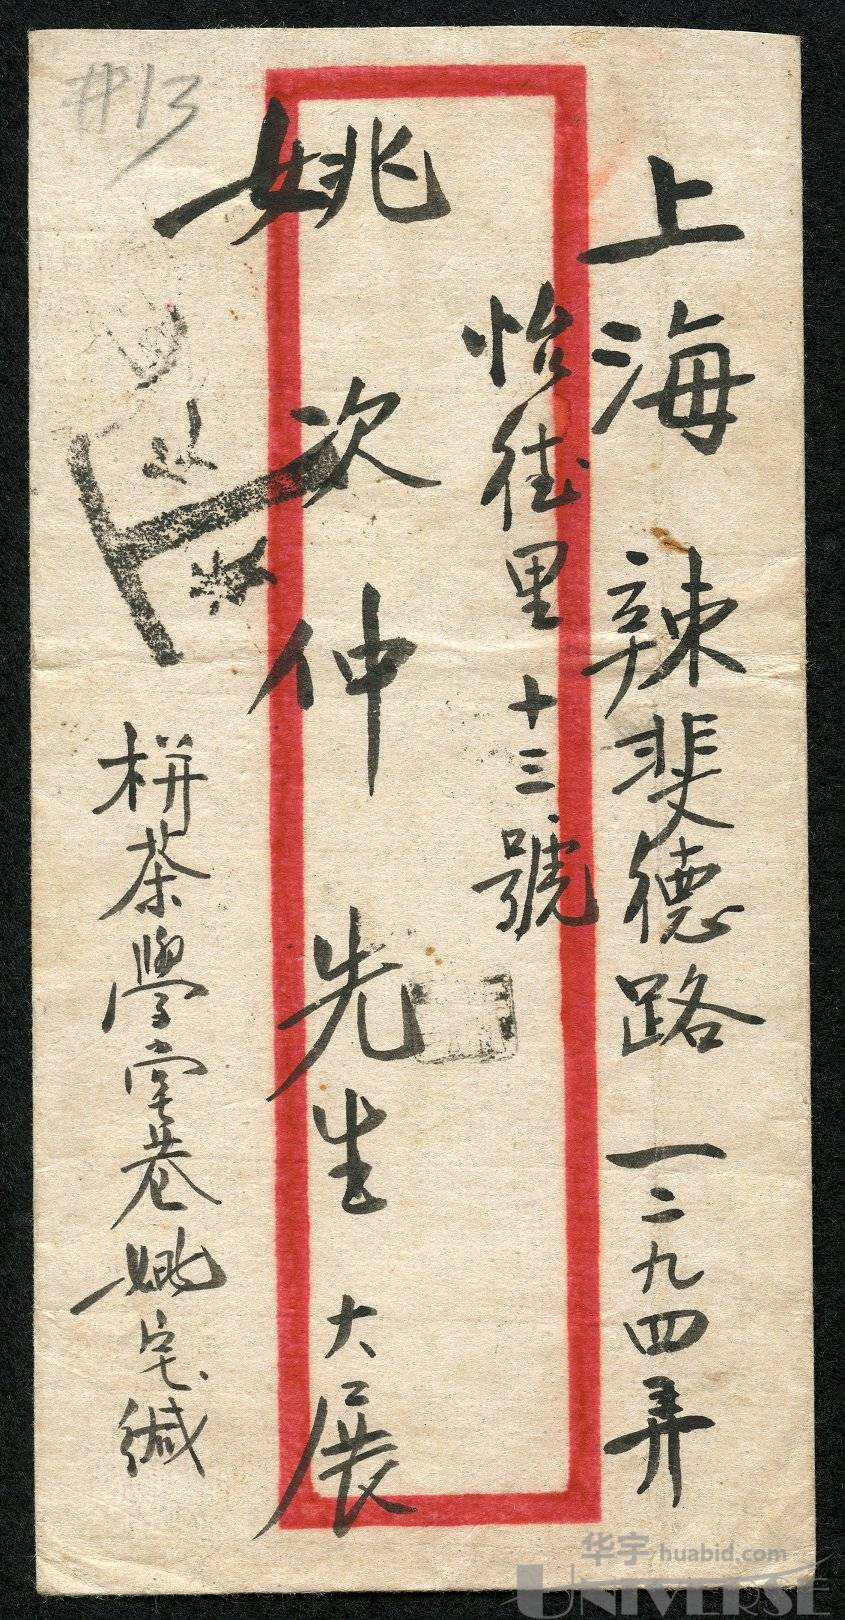 上海辣斐德路一二九四弄
怡德里十三號
姚次仲先生大展
栟茶學堂巷姚宅緘
#13
华宇 huabid.com
UNIVERSE